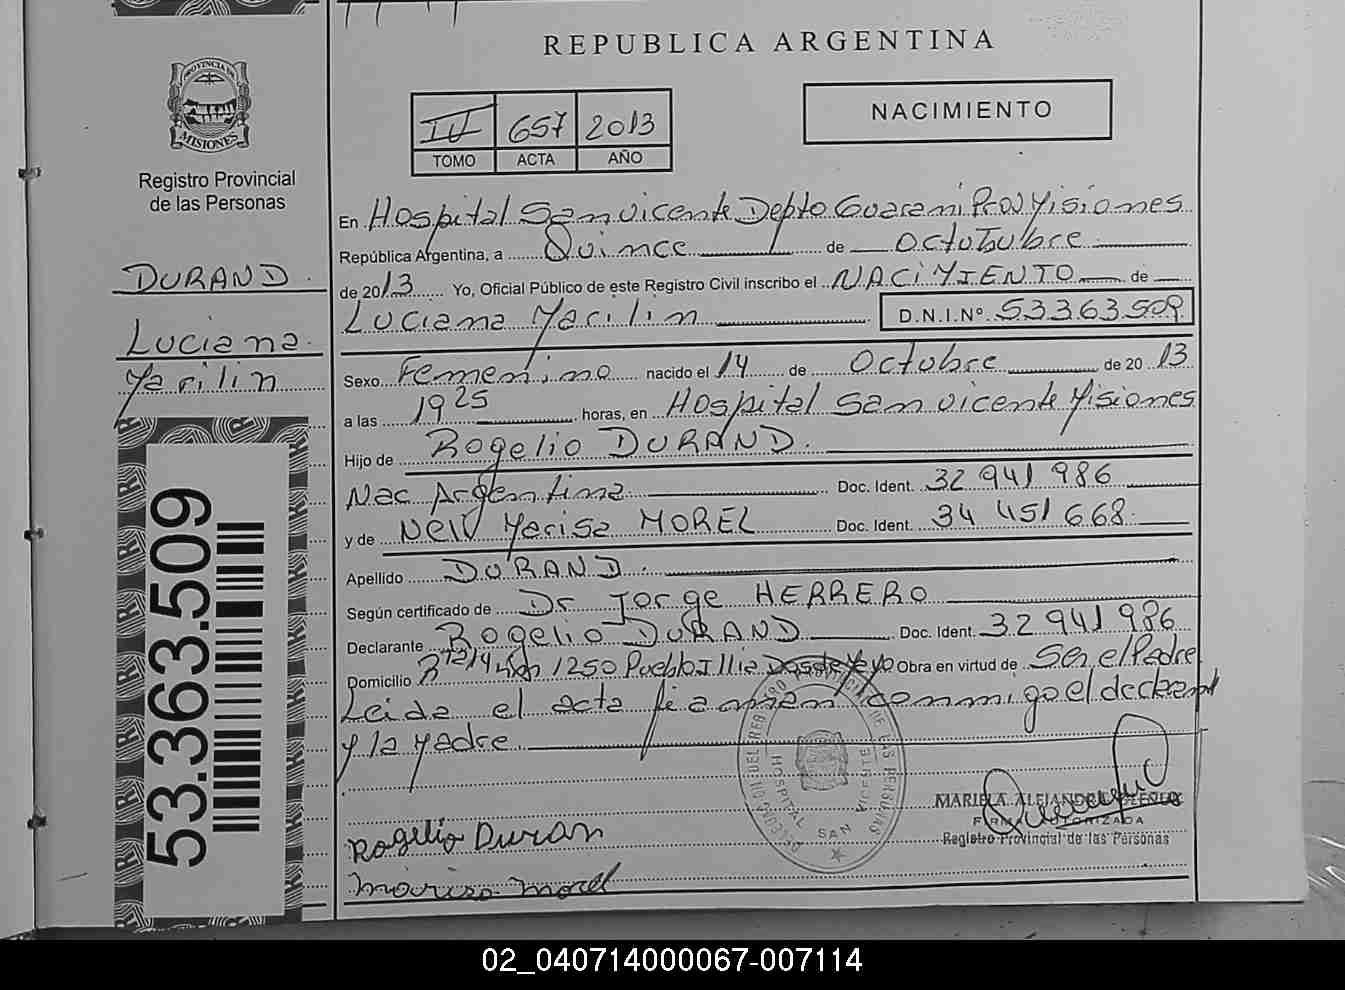 REPUBLICA ARGENTINA
PROVINCIA DE
MISIONES
Registro Provincial
de las Personas
IV 657 2013
TOMO ACTA AÑO
NACIMIENTO
DURAND.
Luciana.
Yarilin
53.363.509
En Hospital San vicente Depto Guarami Prov Misiones
República Argentina, a Quince de octutubre
de 2013 Yo, Oficial Público de este Registro Civil inscribo el NACIMIENTO de
Luciana Yarilin D.N.I.Nº. 53363509
Sexo Femenino nacido el 14 de Octubre de 2013
a las 1925 horas, en Hospital San vicente Misiones
Hijo de Rogelio DURAND.
Nac Argentina Doc. Ident. 32 941 986
y de Marisa MOREL Doc. Ident. 34 451 668
Apellido DURAND.
Según certificado de Dr Jorge HERRERO
Declarante Rogelio DURAND Doc. Ident. 32 941 986
Domicilio 1250 Pueblo Illia Obra en virtud de Ser el Padre
Leida el acta firman conmigo el declarant
y la Madre
DEL REGISTRO PROVINCIAL DE LAS PERSONAS
HOSPITAL SAN VICENTE
MARIELA ALEJANDRA
FIRMA AUTORIZADA
Registro Provincial de las Personas
Rogelio Duran
Mariza Morel
02_040714000067-007114